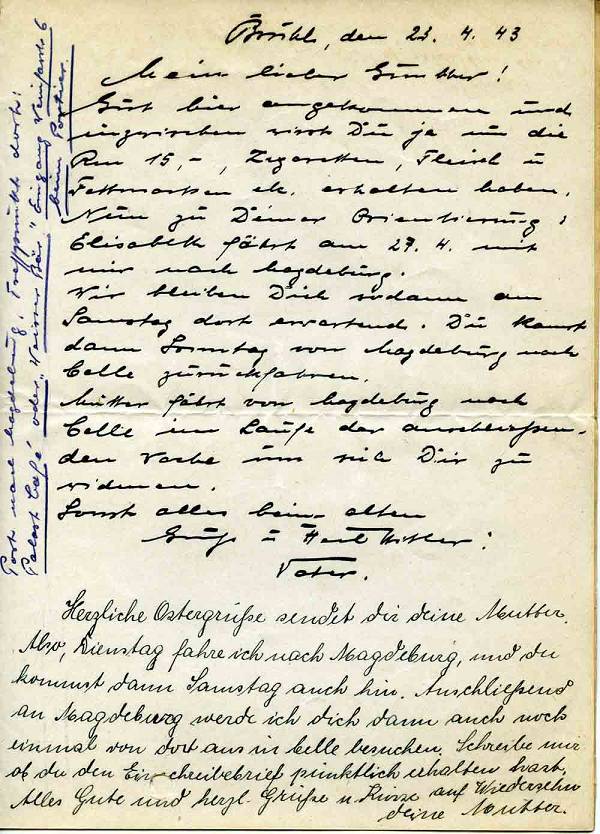 Brühl, den 23. 4. 43
Mein lieber Günther!
Gut hier angekommen und
inzwischen wirst Du ja um die
Rm 15,-, Zigaretten, Fleisch u
Fettmarken etc. erhalten haben.
Nun zu Deiner Orientierung:
Elisabeth fährt am 27. 4. mit
mir nach Magdeburg.
Wir bleiben Dich sodann am
Samstag dort erwartend. Du kannst
dann Sonntag von Magdeburg nach
Celle zurückfahren.
Mutter fährt von Magdeburg nach
Celle im Laufe der anschliessen-
den Woche um sich Dir zu
widmen.
Sonst alles beim alten
Gruß u Heil Hitler!
Vater.
nach Magdeburg. Treffpunkt dort:
Palast Café oder "Weisser Bär" Eingang
beim Portier
Herzliche Ostergrüße sendet dir deine Mutter.
Also, Dienstag fahre ich nach Magdeburg, und du
kommst dann Samstag auch hin. Anschließend
an Magdeburg werde ich dich dann auch noch
einmal von dort aus in Celle besuchen. Schreibe mir
ob du den Einschreibebrief pünktlich erhalten hast.
Alles Gute und herzl. Grüße u. Küsse auf Wiedersehn
deine Mutter.